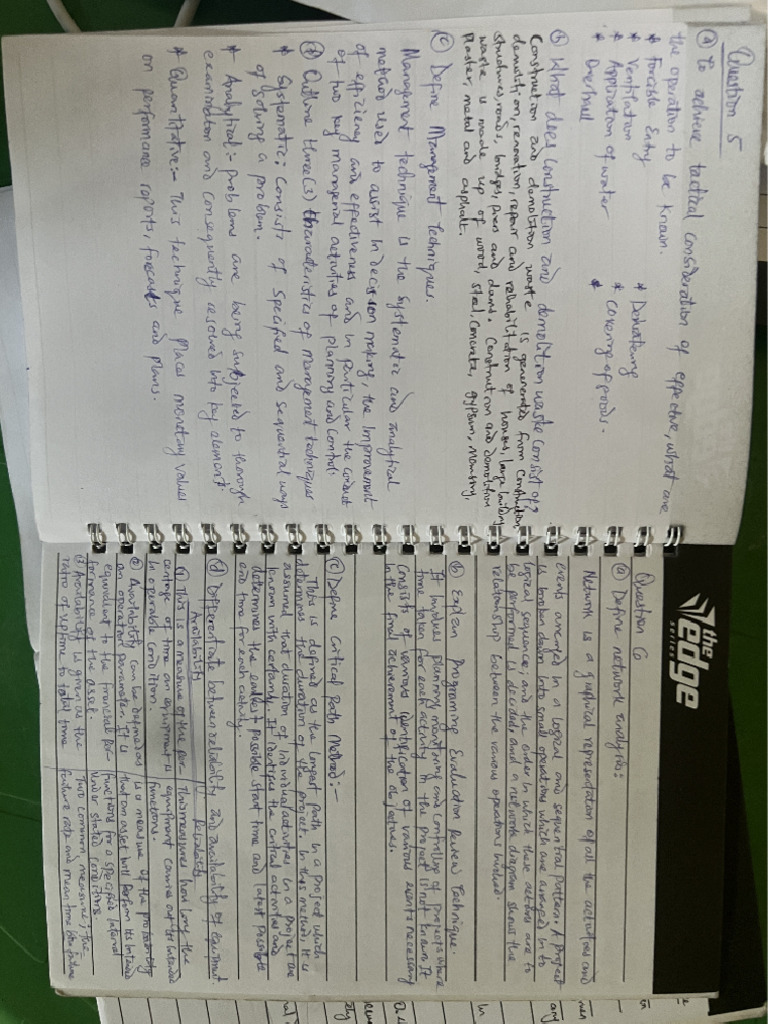 Question 5
(a) To achieve tactical consideration of effective, what are
the operation to be known.
* Forcible Entry * Dewatering
* Ventilation * Covering of goods.
* Application of water *
* Overhaul
(b) What does construction and demolition waste consist of?
Construction and demolition waste is generated from construction
demolition, renovation, repair and rehabilitation of houses, large building
structures, roads, bridges, piers and dams. Construction and demolition
waste is made up of wood, steel, concrete, gypsum, masonry,
Plaster, metal and asphalt.
(c) Define Management techniques.
Management technique is the systematic and analytical
method used to assist in decision making, the improvement
of efficiency and effectiveness and in particular the conduct
of two key managerial activities of planning and control.
(d) Outline three (3) characteristics of management techniques
* Systematic: Consists of Specified and sequential ways
of solving a problem.
* Analytical:- problems are being subjected to thorough
examination and consequently resolved into key element
* Quantitative:- This technique places monetary values
on performance reports, forecasts and plans.
the
edge
series
Question 6
(a) Define network analysis:
Network is a graphical representation of all the activities and
events arranged in a logical and sequential pattern. A project
is broken down into small operations which are arranged in to
logical sequence; and the order in which these activities are to
be performed is decided and a network diagram shows the
relationship between the various operations involved.
(b) Explain programing Evaluation Review Technique.
It involves planning monitoring and controlling of projects where
time taken for each activity in the project is not known. It
consists of various identification of various events necessary
in the final achievement of the objectives.
(c) Define Critical Path Method:-
This is defined as the longest path in a project which
determines the duration of the project. In this method, it is
assumed that duration of individual activities in a project are
known with certainty. It identifies the critical activities and
determines the earliest possible start time and latest possible
end time for each activity.
(d) Differentiate between reliability and availability of equipment
Availability Reliability
(1) This is a measure of the per- This measures how long the
centage of time an equipment is equipment carries out its intended
in operable condition. functions.
(2) Availability can be defined as is a measure of the probability
an operation parameter. It is that an asset will perform its intended
equivalent to the financial per- functions for a specific interval
formance of the asset. under stated conditions.
(3) Availability is given as the Two common measure; the
ratio of uptime to total time failure rate and mean time btw failure